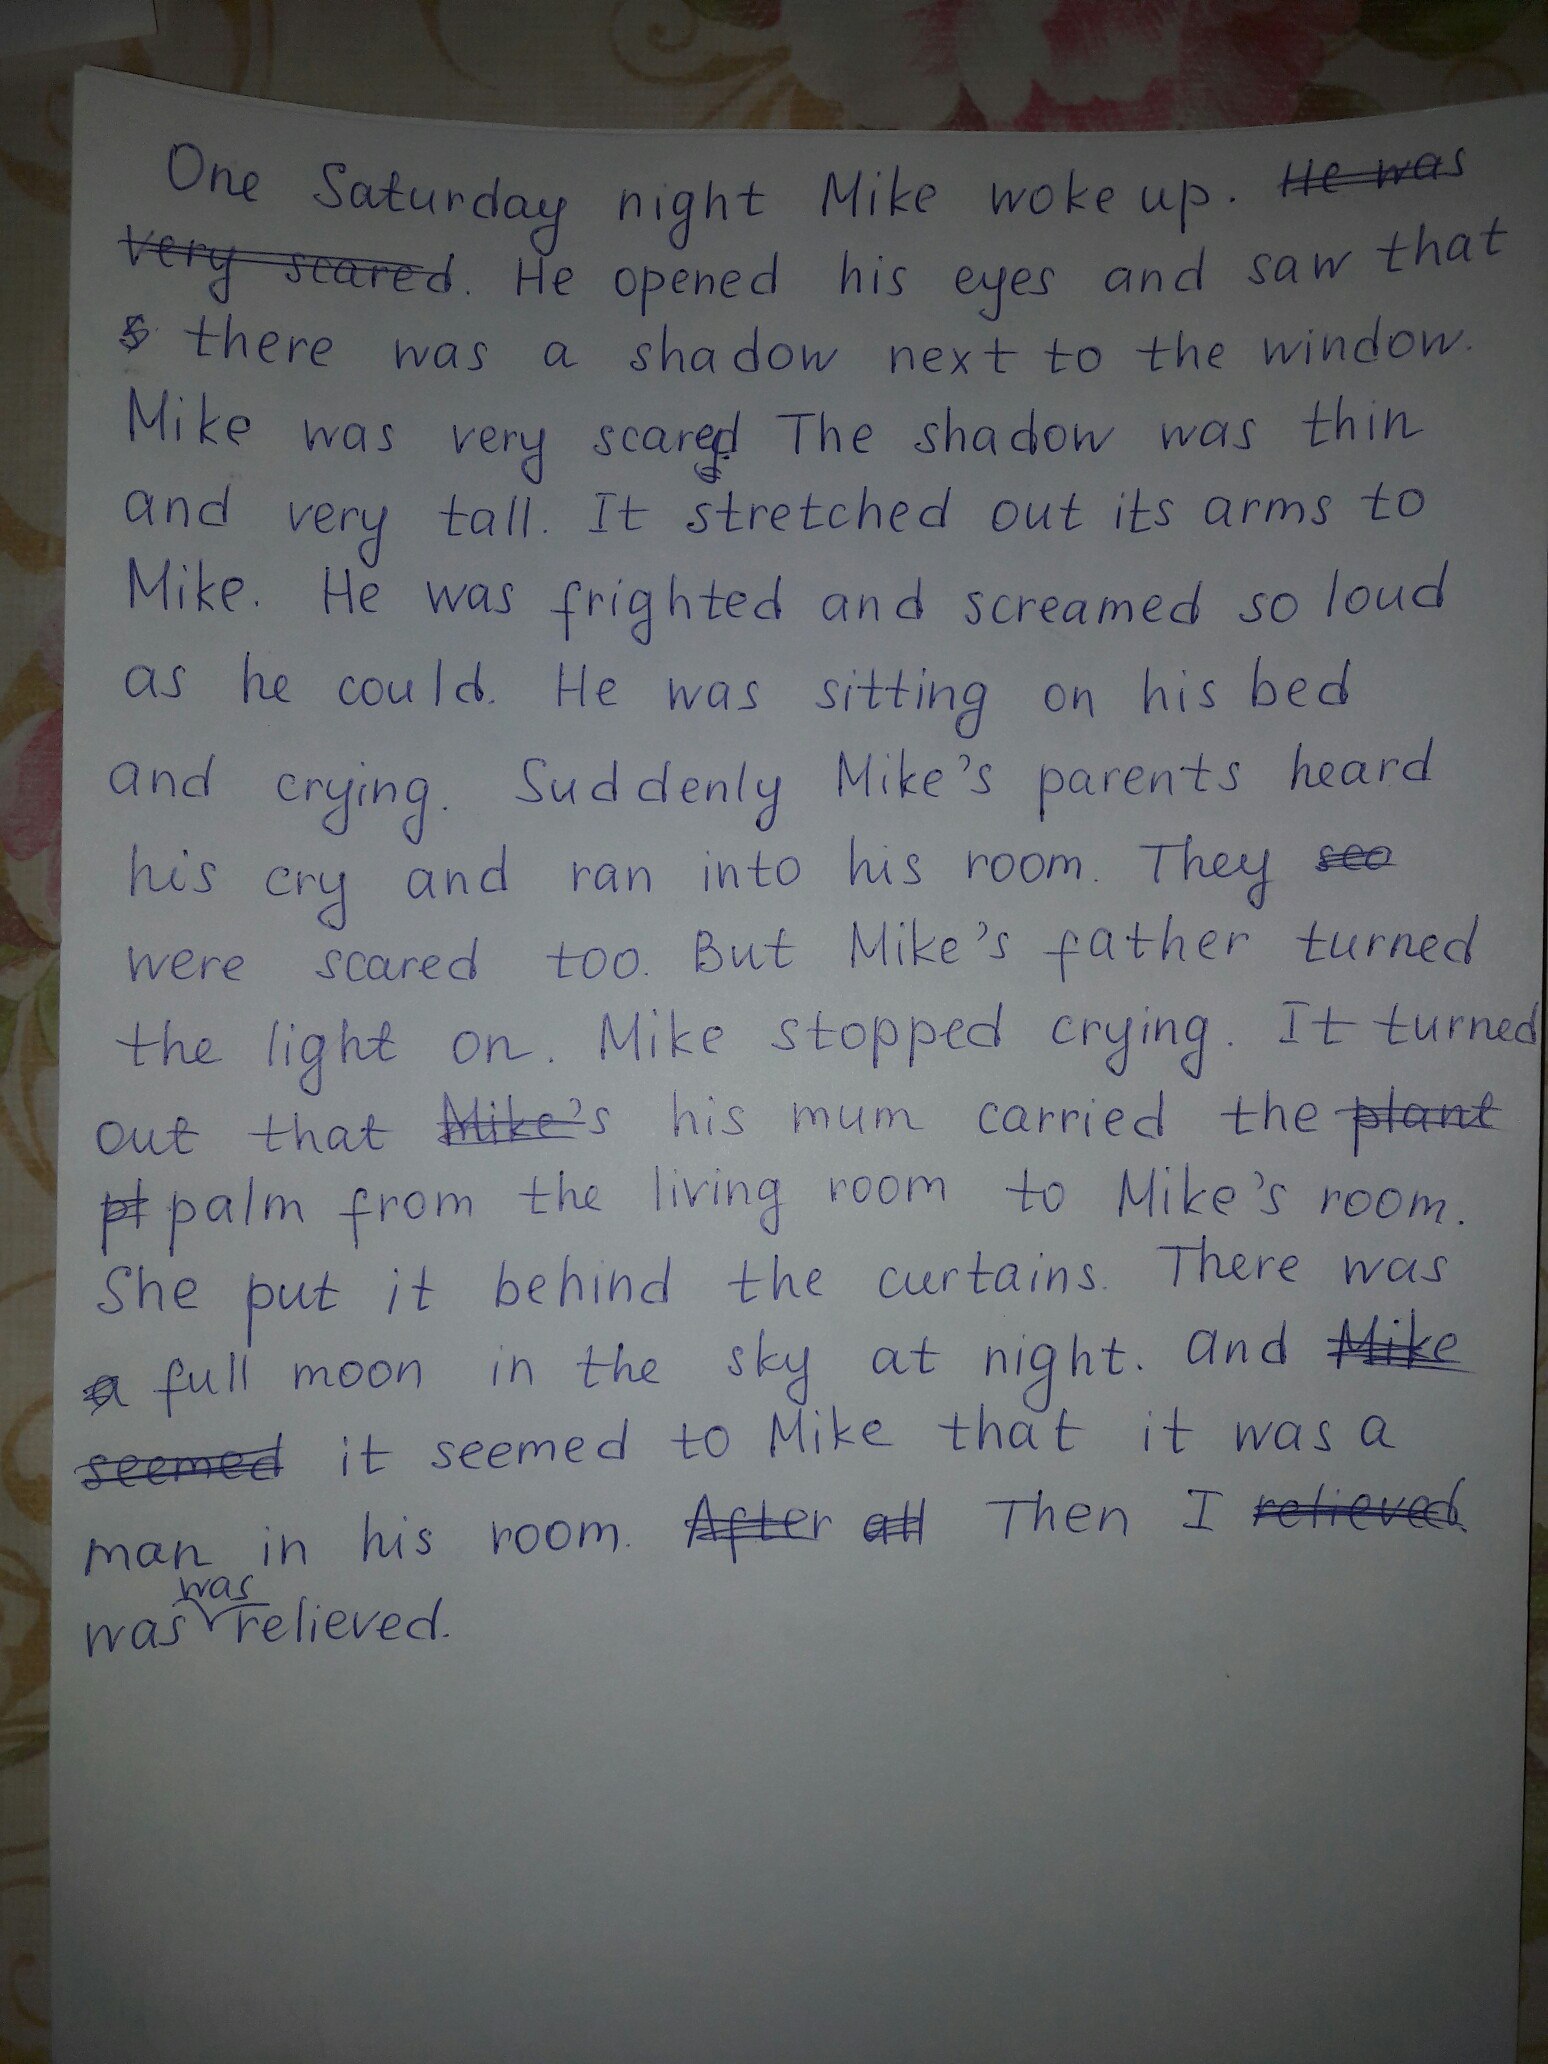 One Saturday night Mike woke up. He was
very scared. He opened his eyes and saw that
there was a shadow next to the window.
Mike was very scared The shadow was thin
and very tall. It stretched out its arms to
Mike. He was frighted and screamed so loud
as he could. He was sitting on his bed
and crying. Suddenly Mike's parents heard
his cry and ran into his room. They sco
were scared too. But Mike's father turned
the light on. Mike stopped crying. It turned
out that Mike's his mum carried the plant
pl palm from the living room to Mike's room.
She put it behind the curtains. There was
a full moon in the sky at night. and Mike
seemed it seemed to Mike that it was a
man in his room. After all Then I relieved
was
was relieved.